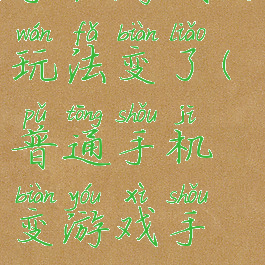 wán fǎ biàn liǎo
玩法变了(
pǔ tōng shǒu jī
普通手机
biàn yóu xì shǒu
变游戏手